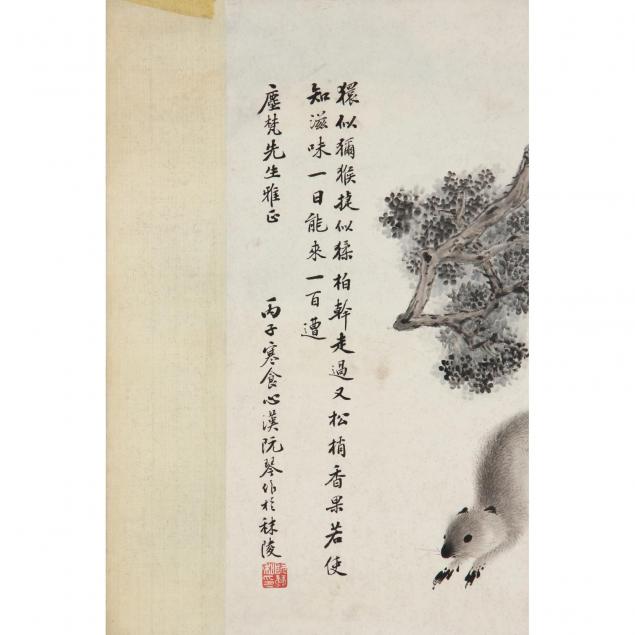 獧似獼猴捷似猱柏幹走過又松梢香果若使
知滋味一日能來一百遭
塵梵先生雅正
丙子寒食心漢阮琴作於秣陵